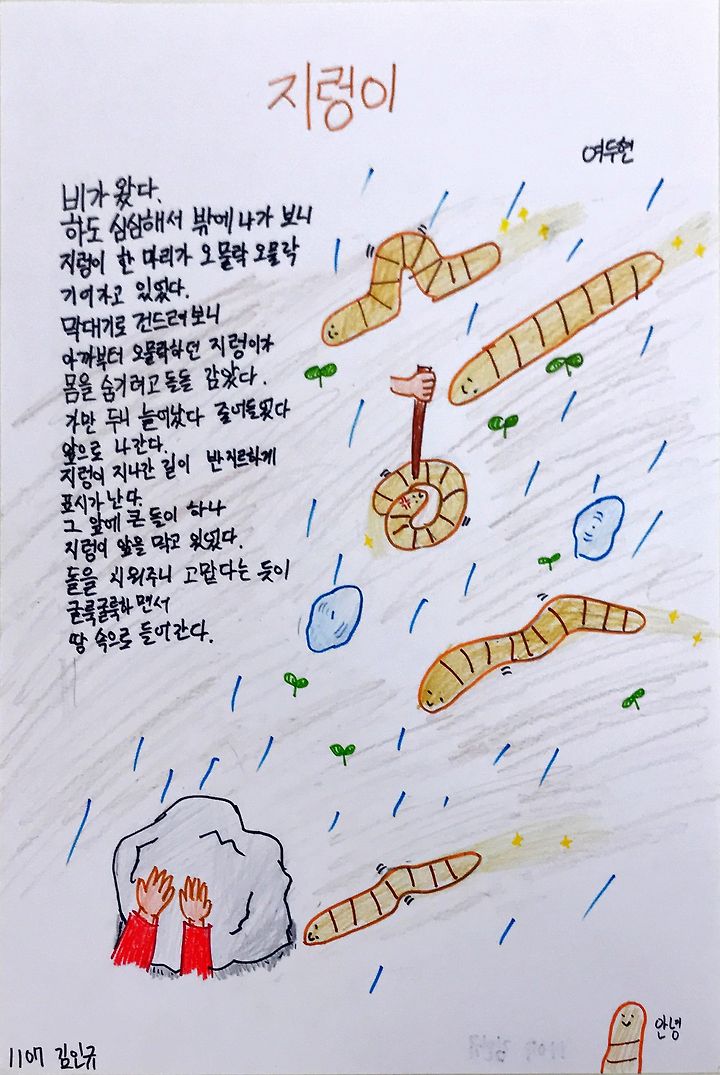 지렁이
여두현
비가 왔다.
하도 심심해서 밖에 나가 보니
지렁이 한 마리가 오물락 오물락
기어가고 있었다.
막대기로 건드려 보니
아까부터 오물락하던 지렁이가
몸을 숨기려고 돌돌 감았다.
가만 두니 늘어났다 줄어들었다
앞으로 나간다.
지렁이 지나간 길이 반지르하게
표시가 난다.
그 앞에 큰 돌이 하나
지렁이 앞을 막고 있었다.
돌을 치워주니 고맙다는 듯이
굴룩굴룩하면서
땅 속으로 들어간다.
안녕
1107 김인규